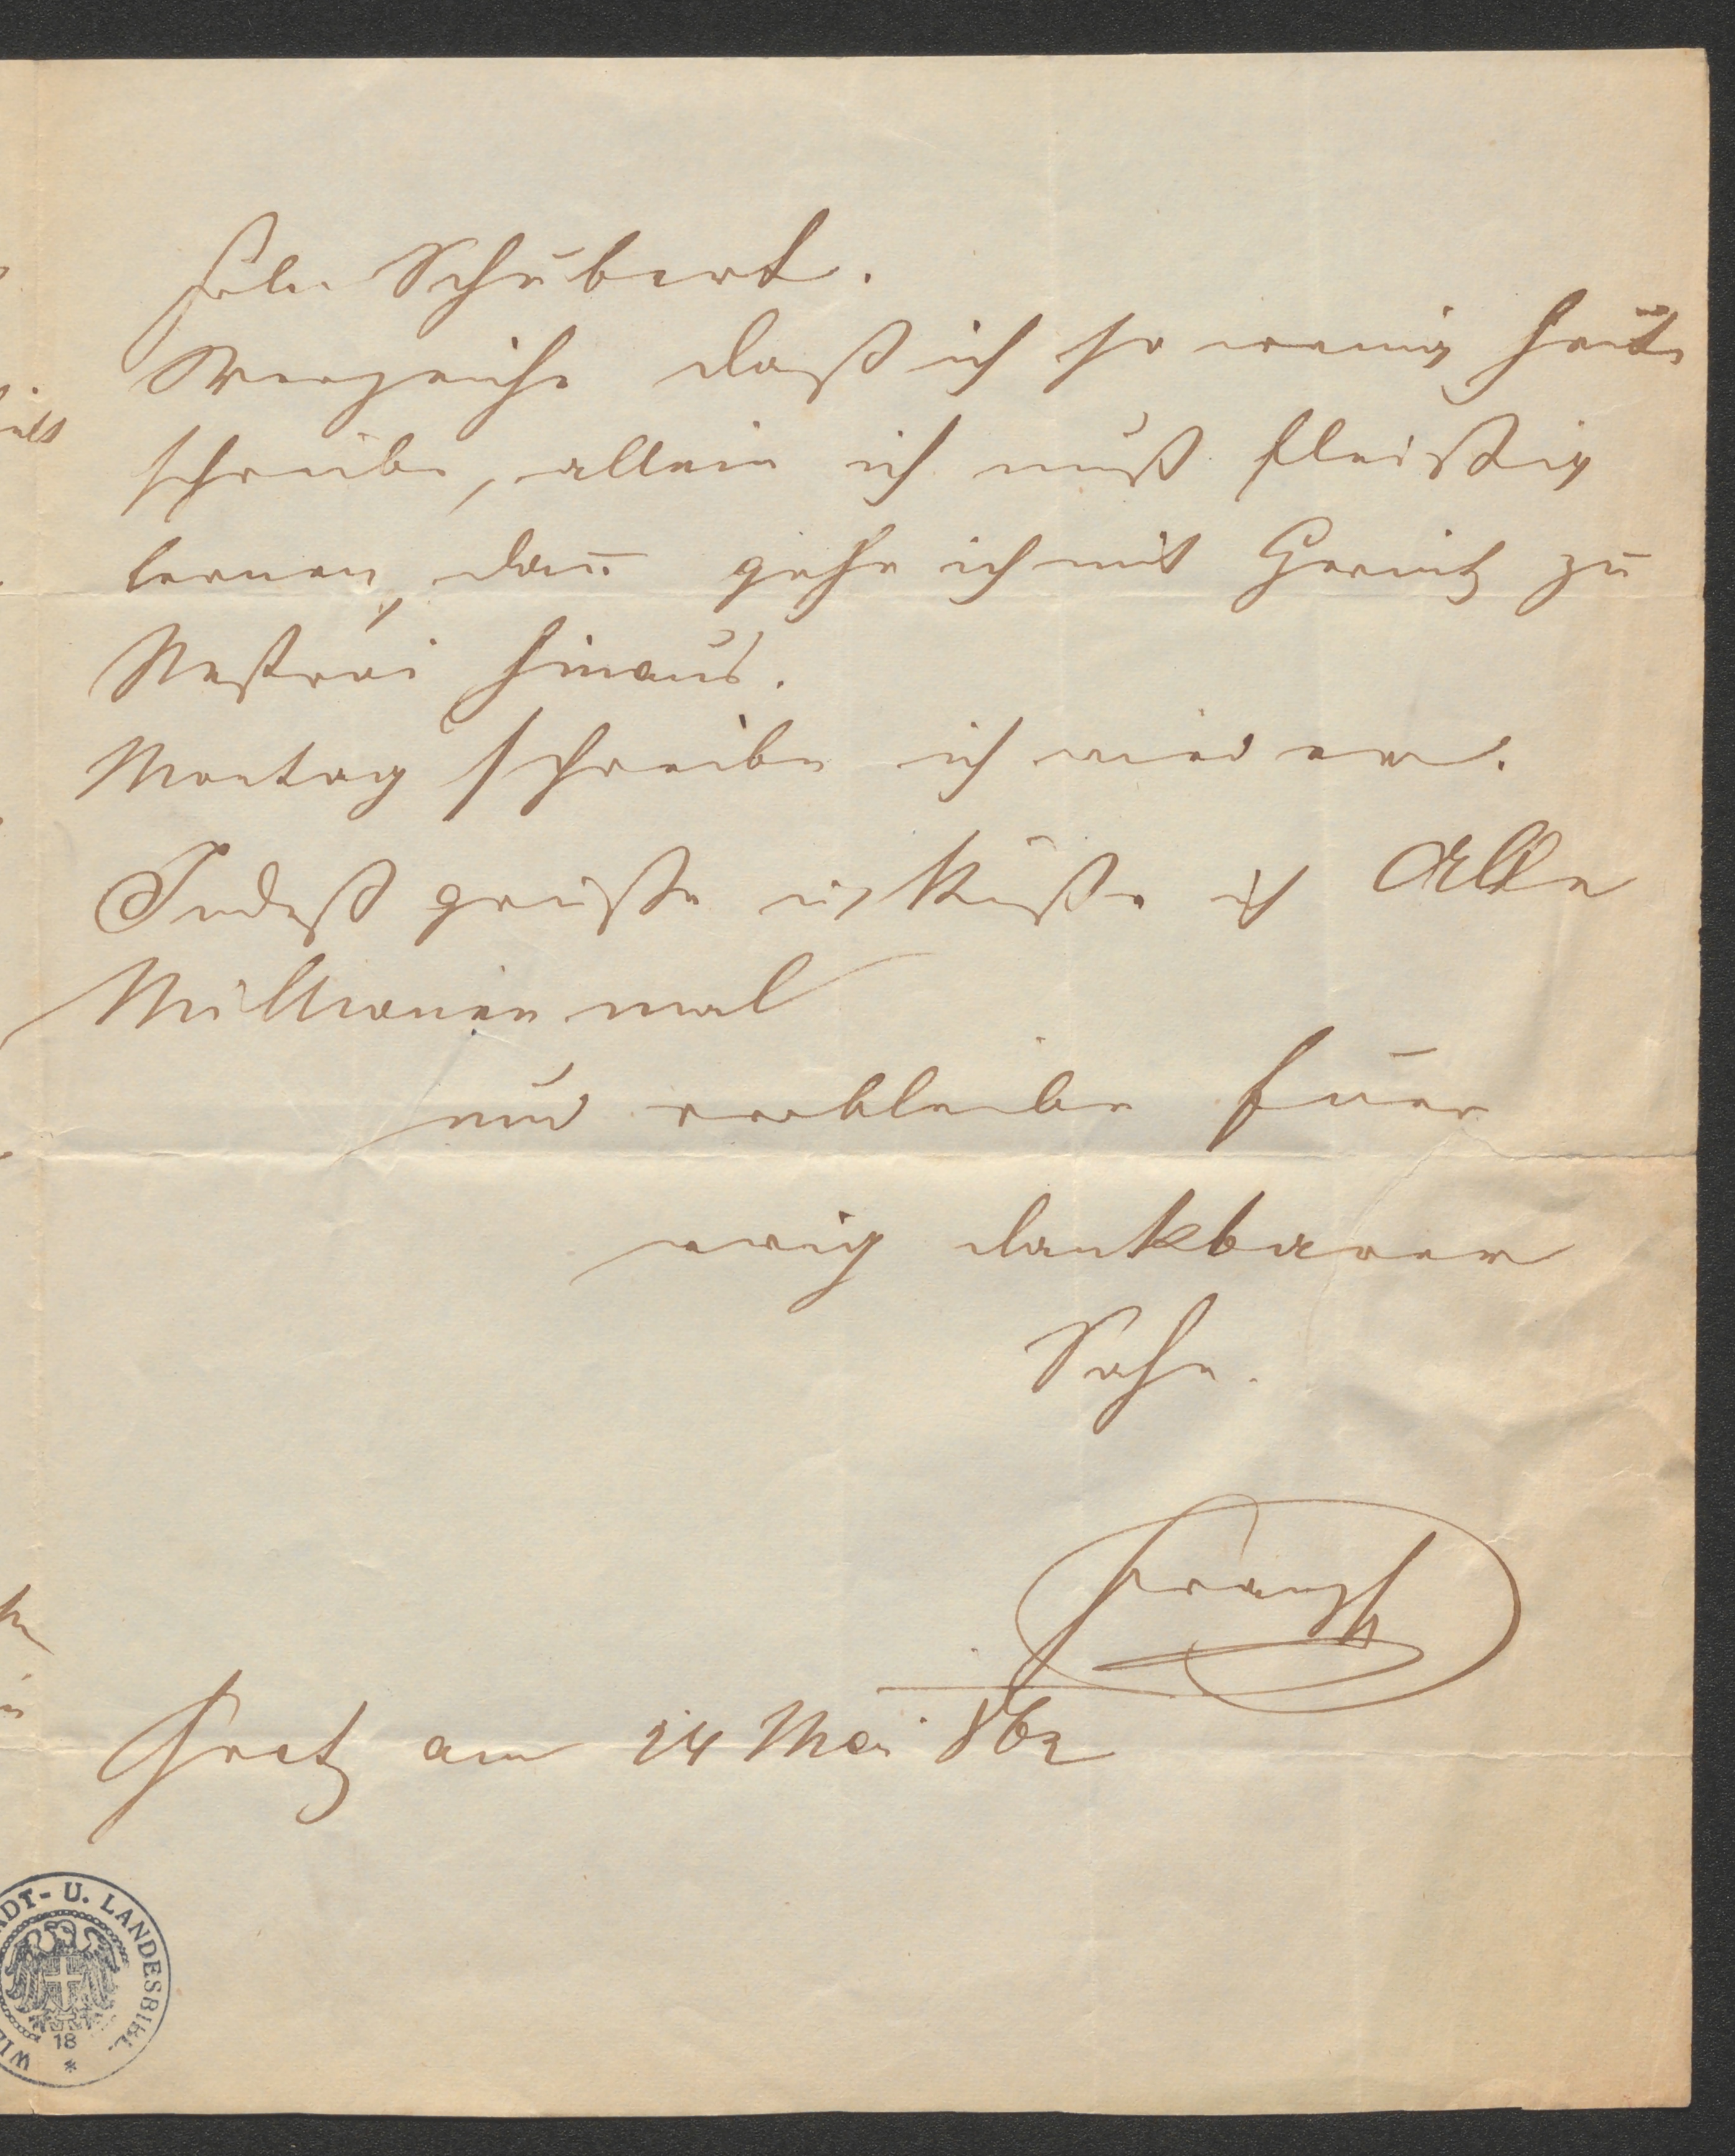 Frln Schubert.
Verzeihe daß ich so wenig heute
schreibe, allein ich muß fleißig
lernen, dan̄ gehe ich mit Gernitz zu
Nestroi hinaus.
Montag schreibe ich wieder.
Indeß grüße u küße ich Alle
Millionen mal
und verbleibe Euer
ewig dankbarer
Sohn.
Franz
Gratz am 24 Mai 862
ADT- U. LANDESBIBL.
18